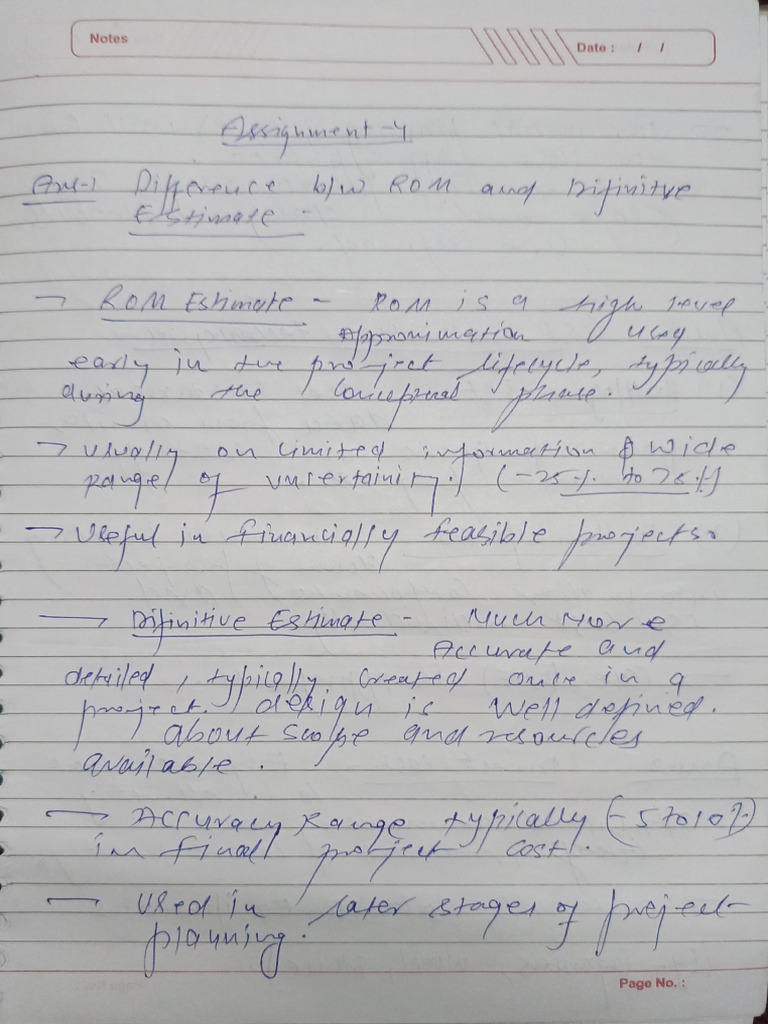 Notes
Date : / /
Assignment-4
Ans-1 Difference b/w ROM and Difinitve
Estimate -
→ ROM Estimate - ROM is a high level
Approximation used
early in the project lifecycle, typically
during the conceptual phase.
→ Usually on limited information & wide
range of uncertainity. (-25% to 75%)
→ Useful in financially feasible projects.
→ Difinitive Estimate - Much More
Accurate and
detailed, typically created once in a
project. design is well defined.
about scope and resources
available.
→ Accuracy Range typically (-5 to 10%)
in final project cost.
→ Used in later stages of project
planning.
Page No. :